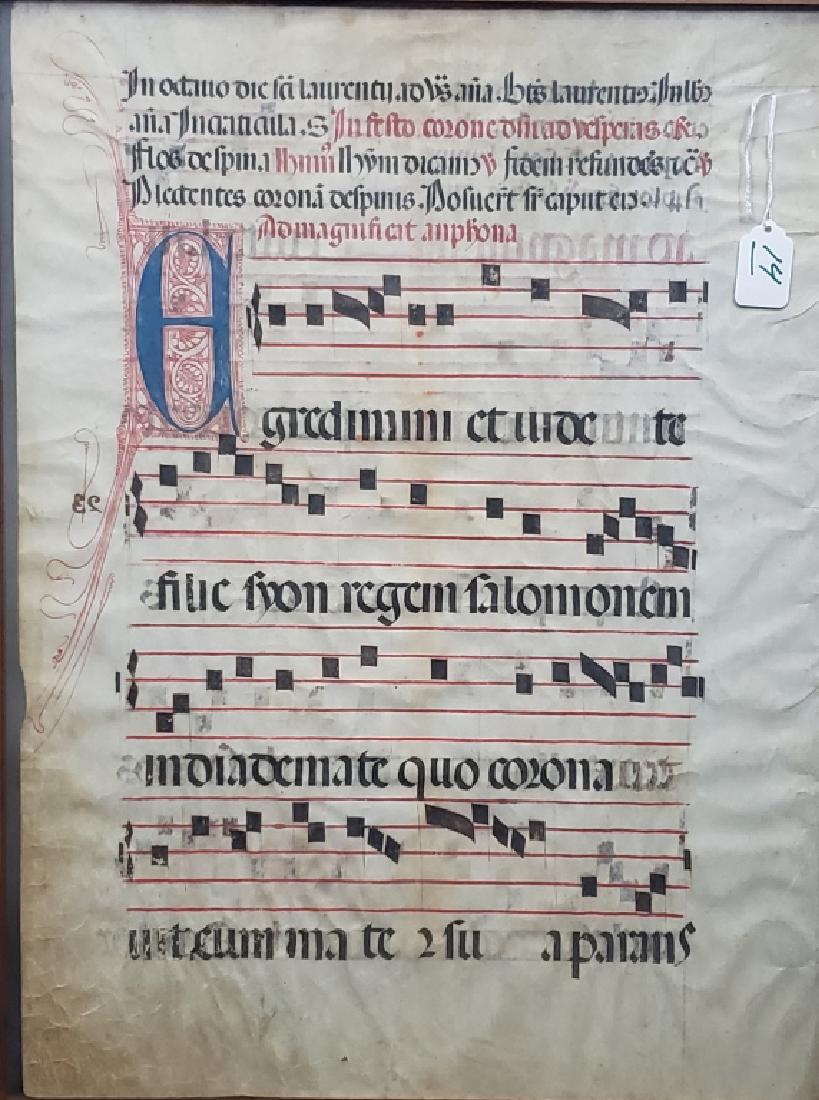 In octauo die sci laurentij ad vs. ana. Btis laurentio: In lb
ana Incraticula. S In festo corone dni ad vesperas
flos de spina Ihmu Ihym dicam v fidem refundes v
Plectentes coronā despinis. Posuert sr caput ei
Ad magnificat anphona
14
Egredimini et uide te
filie syon regem salomonem
in diademate quo corona
uit eum ma te 2 su a parans